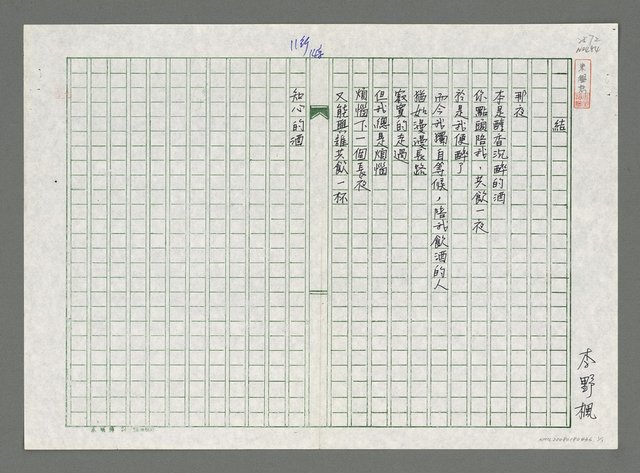 結
那夜
本是醇香沉醉的酒
你點頭陪我，共飲一夜
於是我便醉了
而今我獨自等候，陪我飲酒的人
猶如漫漫長路
寂寞的走過
但我總是煩惱
煩惱下一個長夜
又能與誰共飲一杯
知心的酒
李野楓
11行
14字